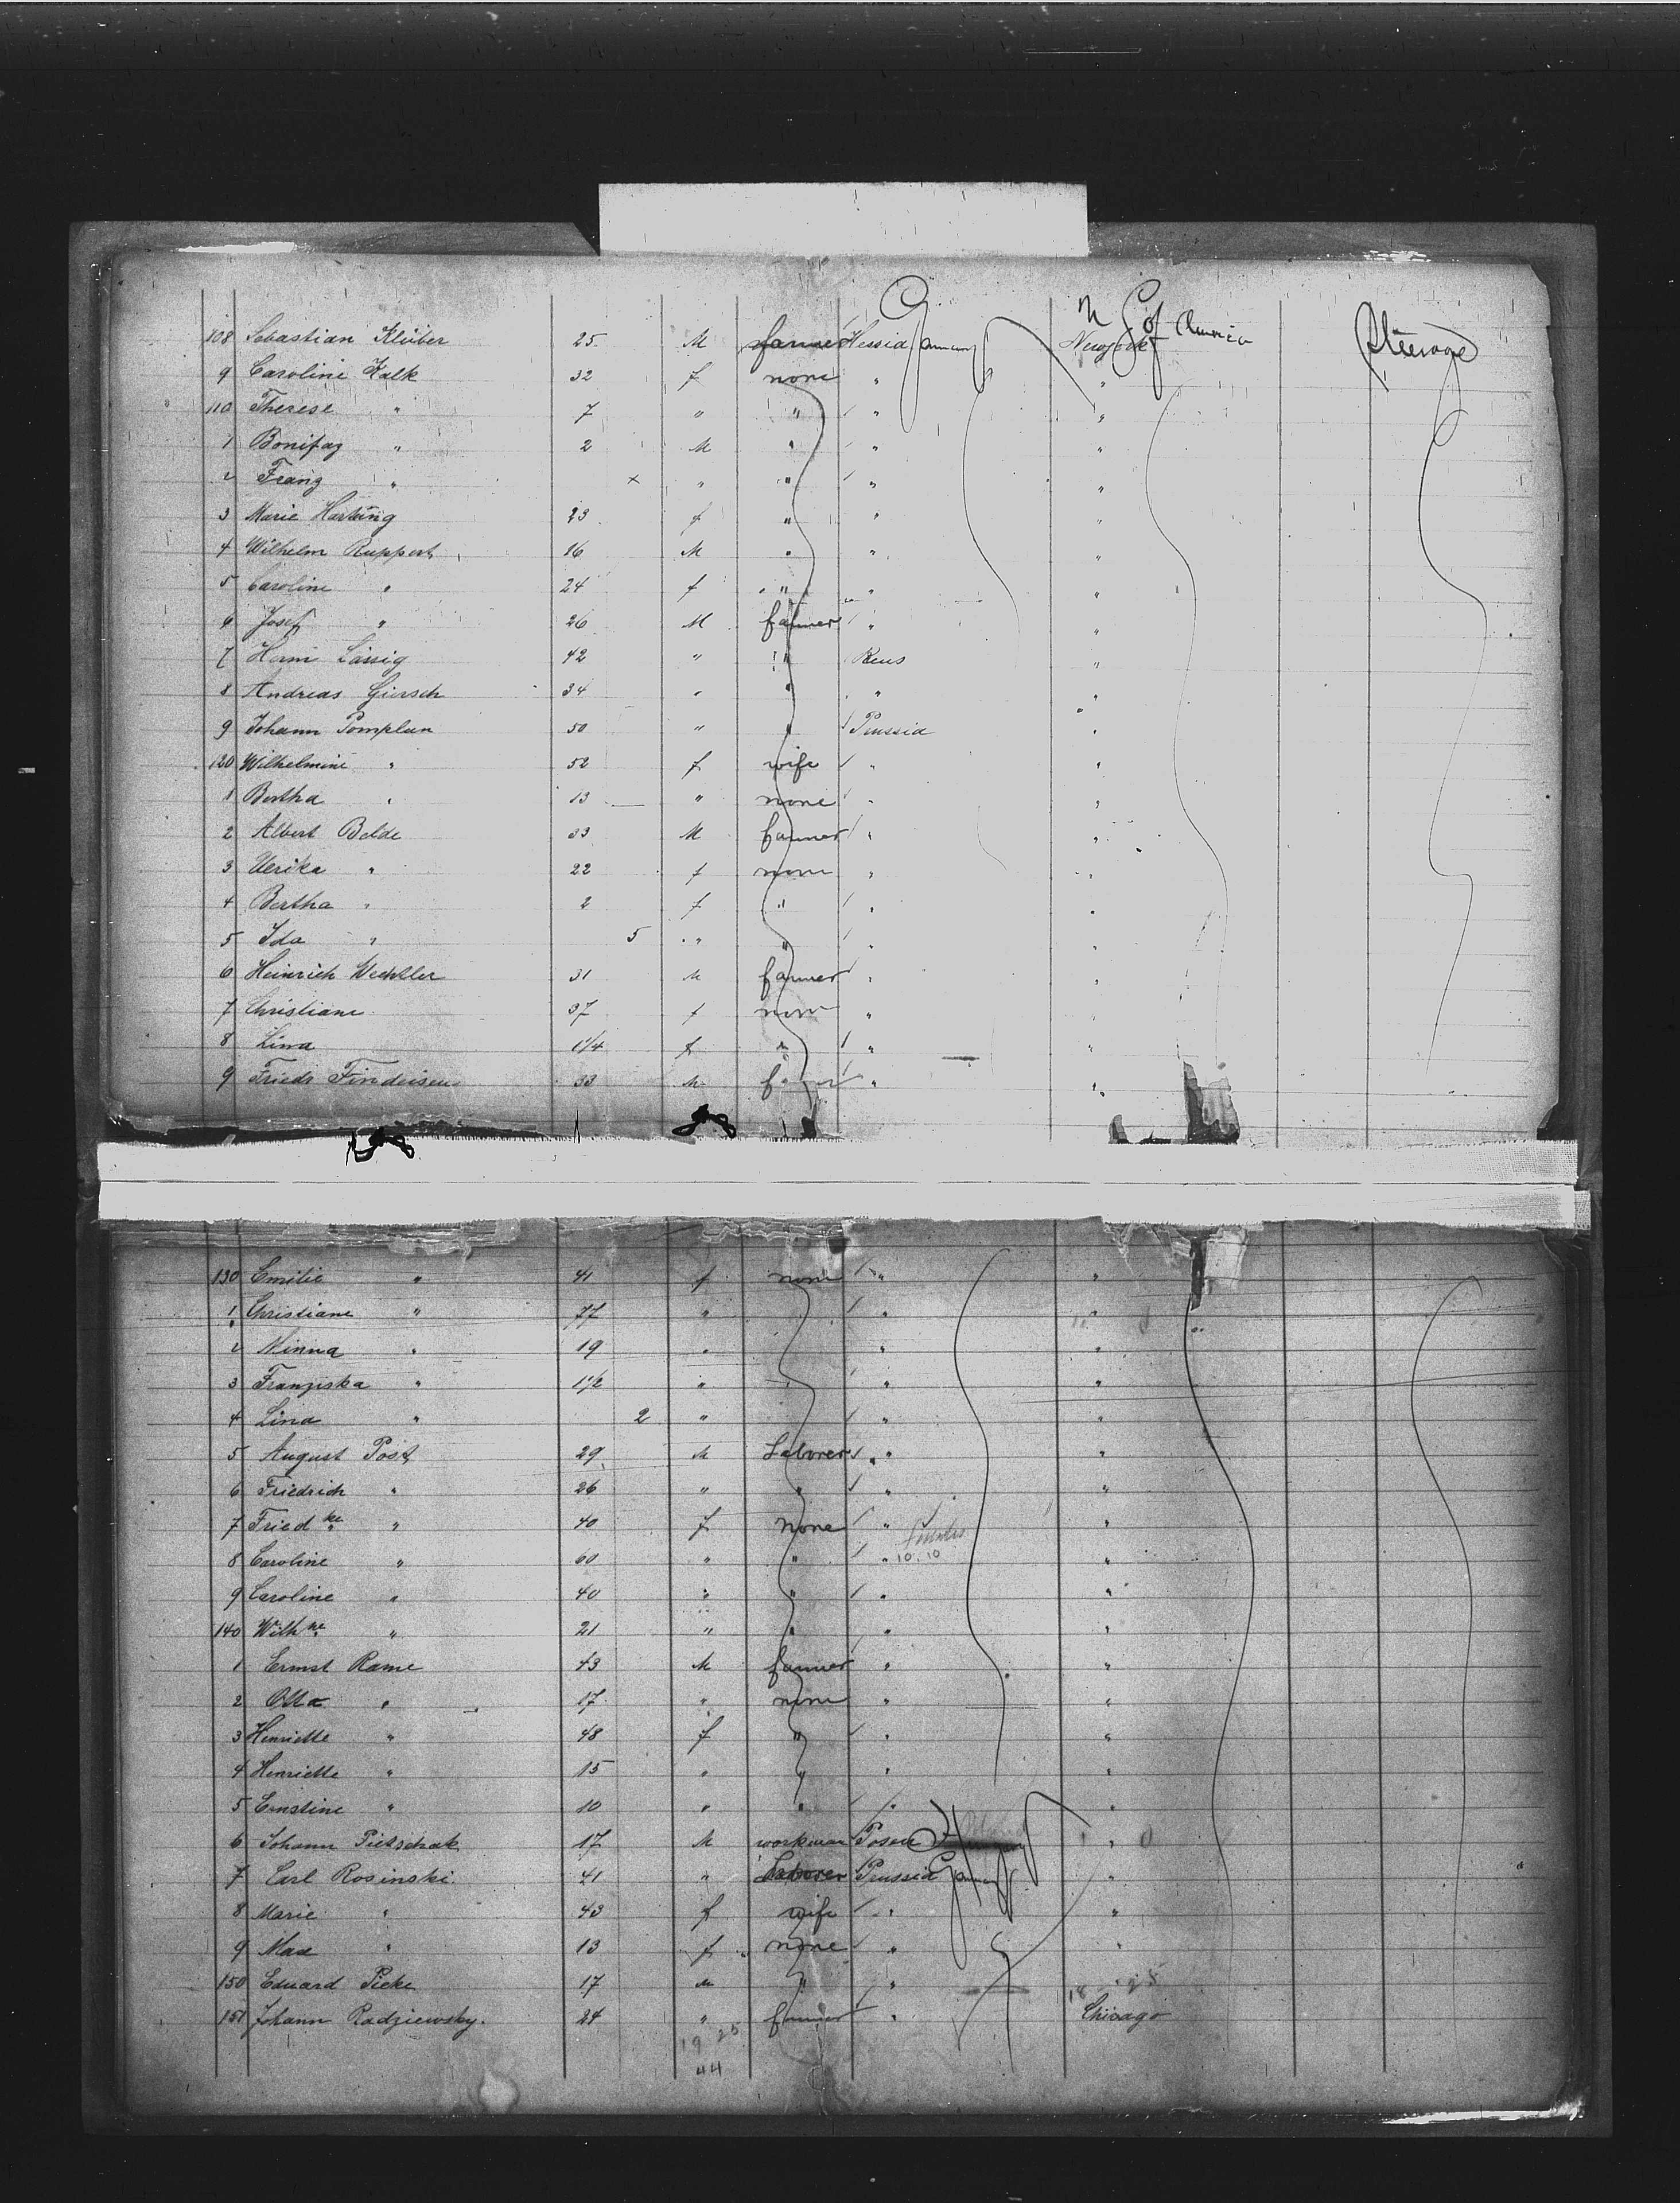 Germany U S of America
108 Sebastian Klüber 25 M farmer Hessia Newyork Steerage
9 Caroline Kalk 32 f none " "
110 Therese " 7 " " " "
1 Bonifaz " 2 M " " "
2 Franz " x " " " "
3 Marie Hartung 23 f " " "
4 Wilhelm Ruppert 16 M " " "
5 Caroline " 24 f " " "
6 Josef " 26 M farmer " "
7 Herm Lässig 42 " " Reus "
8 Andreas Giersch 34 " " " "
9 Johann Pomplun 50 " " Prussia "
120 Wilhelmine " 52 f wife " "
1 Bertha " 13 " none " "
2 Albert Belde 33 M farmer " "
3 Ulrika " 22 f none " "
4 Bertha " 2 f " " "
5 Ida " 5 " " " "
6 Heinrich Wechtler 31 M farmer " "
7 Christiane 37 f none " "
8 Lina 1 1/4 f " " "
9 Friedr Findeisen 33 M farmer " "
130 Emilie " 41 f none " "
1 Christiane " 77 " " "
2 Minna " 19 " " "
3 Franziska " 1 1/2 " " "
4 Lina " 2 " " "
5 August Post 29 M Laborer " "
6 Friedrich " 26 " " " "
7 Friedke " 40 f none " "
8 Caroline " 60 " " " 10.10 "
9 Caroline " 40 " " " "
140 Wilhne " 21 " " " "
1 Ernst Rame 43 M farmer " "
2 Otto " 17 " none " "
3 Henriette " 48 f " " "
4 Henriette " 15 " " " "
5 Ernstine " 10 " " " "
6 Johann Pietschak 17 M workman Posen "
7 Carl Rosinski 41 " Laborer Prussia Germany "
8 Marie " 43 f wife " "
9 Max " 13 f none " "
150 Eduard Pieke 17 M " "
151 Johann Radziewsky. 24 " farmer " Chicago
19 25
44